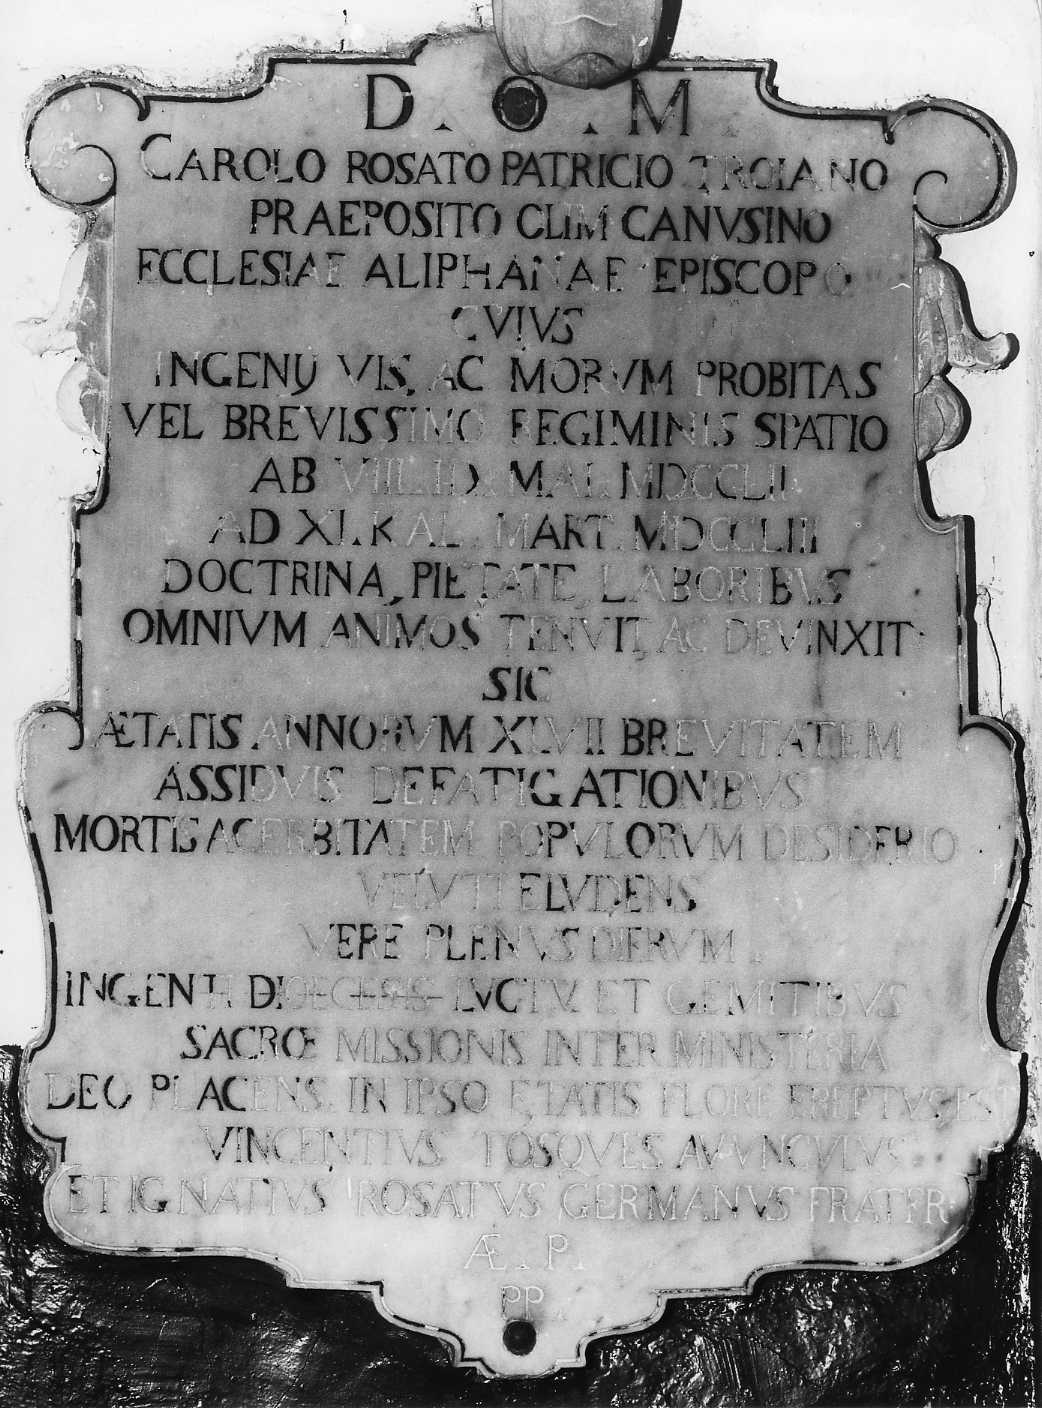 D . O . M .
CAROLO ROSATO PATRICIO TROIANO
PRAEPOSITO CLIM CANVSINO
ECCLESIAE ALIPHANAE EPISCOPO
CVIVS
INGENIJ VIS, AC MORVM PROBITAS
VEL BREVISSIMO REGIMINIS SPATIO
AB VIII. ID. MAI. MDCCLII.
AD XI. KAL. MART. MDCCLIII
DOCTRINA, PIETATE, LABORIBVS
OMNIVM ANIMOS TENVIT, AC DEVINXIT
SIC
ÆTATIS ANNORVM XLVII BREVITATEM
ASSIDVIS DEFATIGATIONIBVS
MORTIS ACERBITATEM POPVLORVM DESIDERIO
VELVTI ELVDENS
VERE PLENVS DIERVM
INGENTI DIOECESIS LVCTV, ET GEMITIBVS
SACRŒ MISSIONIS INTER MINISTERIA
DEO PLACENS IN IPSO ETATIS FLORE EREPTVS EST
VINCENTIVS TOSQVES AVVNCVLVS
ET IGNATIVS ROSATVS GERMANVS FRATER
Æ. P.
PP